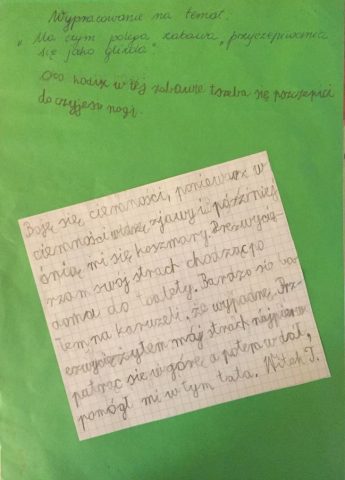 Wypracowanie na temat:
"Na czym polega zabawa "przyczepiania
się jako glizda"
Otóż w tej zabawie trzeba się przyczepić
do czyjejś nogi.
Boję się ciemności, ponieważ w
ciemności widzę zjawy i później
śnią mi się koszmary. Przezwycię-
żam swój strach chodząc po
domu do toalety. Bardzo się ba-
łem na karuzeli, że wypadnę. Prz-
ezwyciężyłem mój strach najpierw
patrząc się w górę a potem w dal,
pomógł mi w tym tata. Witek J.